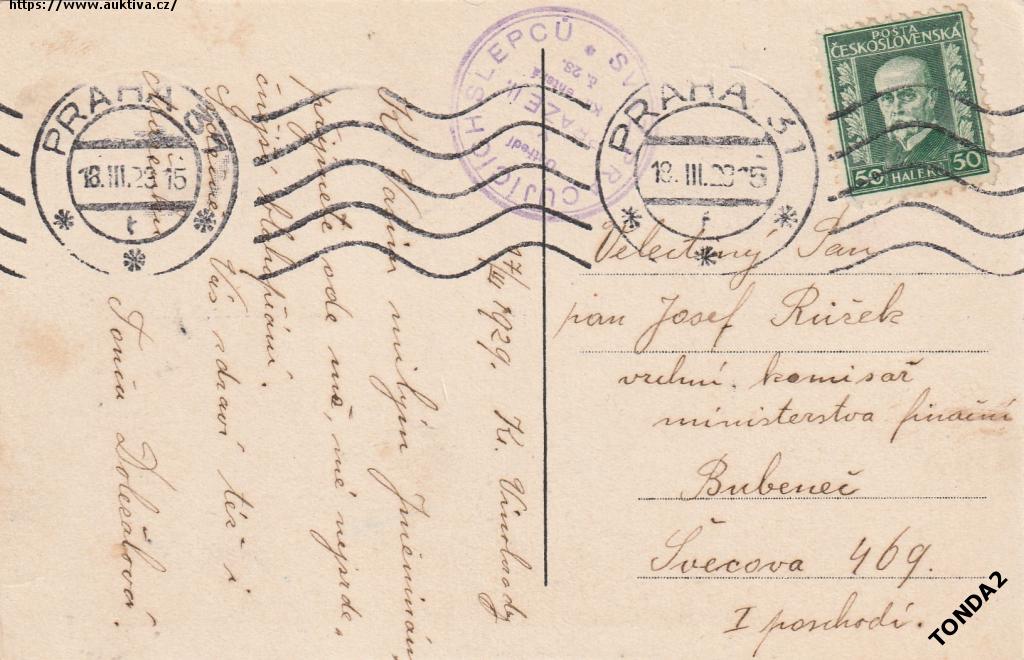 https://www.auktiva.cz/
POSTA
ČESKOSLOVENSKÁ
50 HALÉŘŮ 50
PRAHA 31
18.III.29 15
PRAHA 31
18.III.29 15
17/III 1929. Kr. Vinohrady
K Vašim milým Jmeninám,
přijměte ode mě, mé nejsrde-
čnější blahopřání.
Vás zdraví též i
Tonča Doležalová.
Velectěný Pan
pan Josef Růžek
vrchní. komisař
ministerstva finanční
Bubeneč
Švecova 469.
I poschodí.
TONDA2